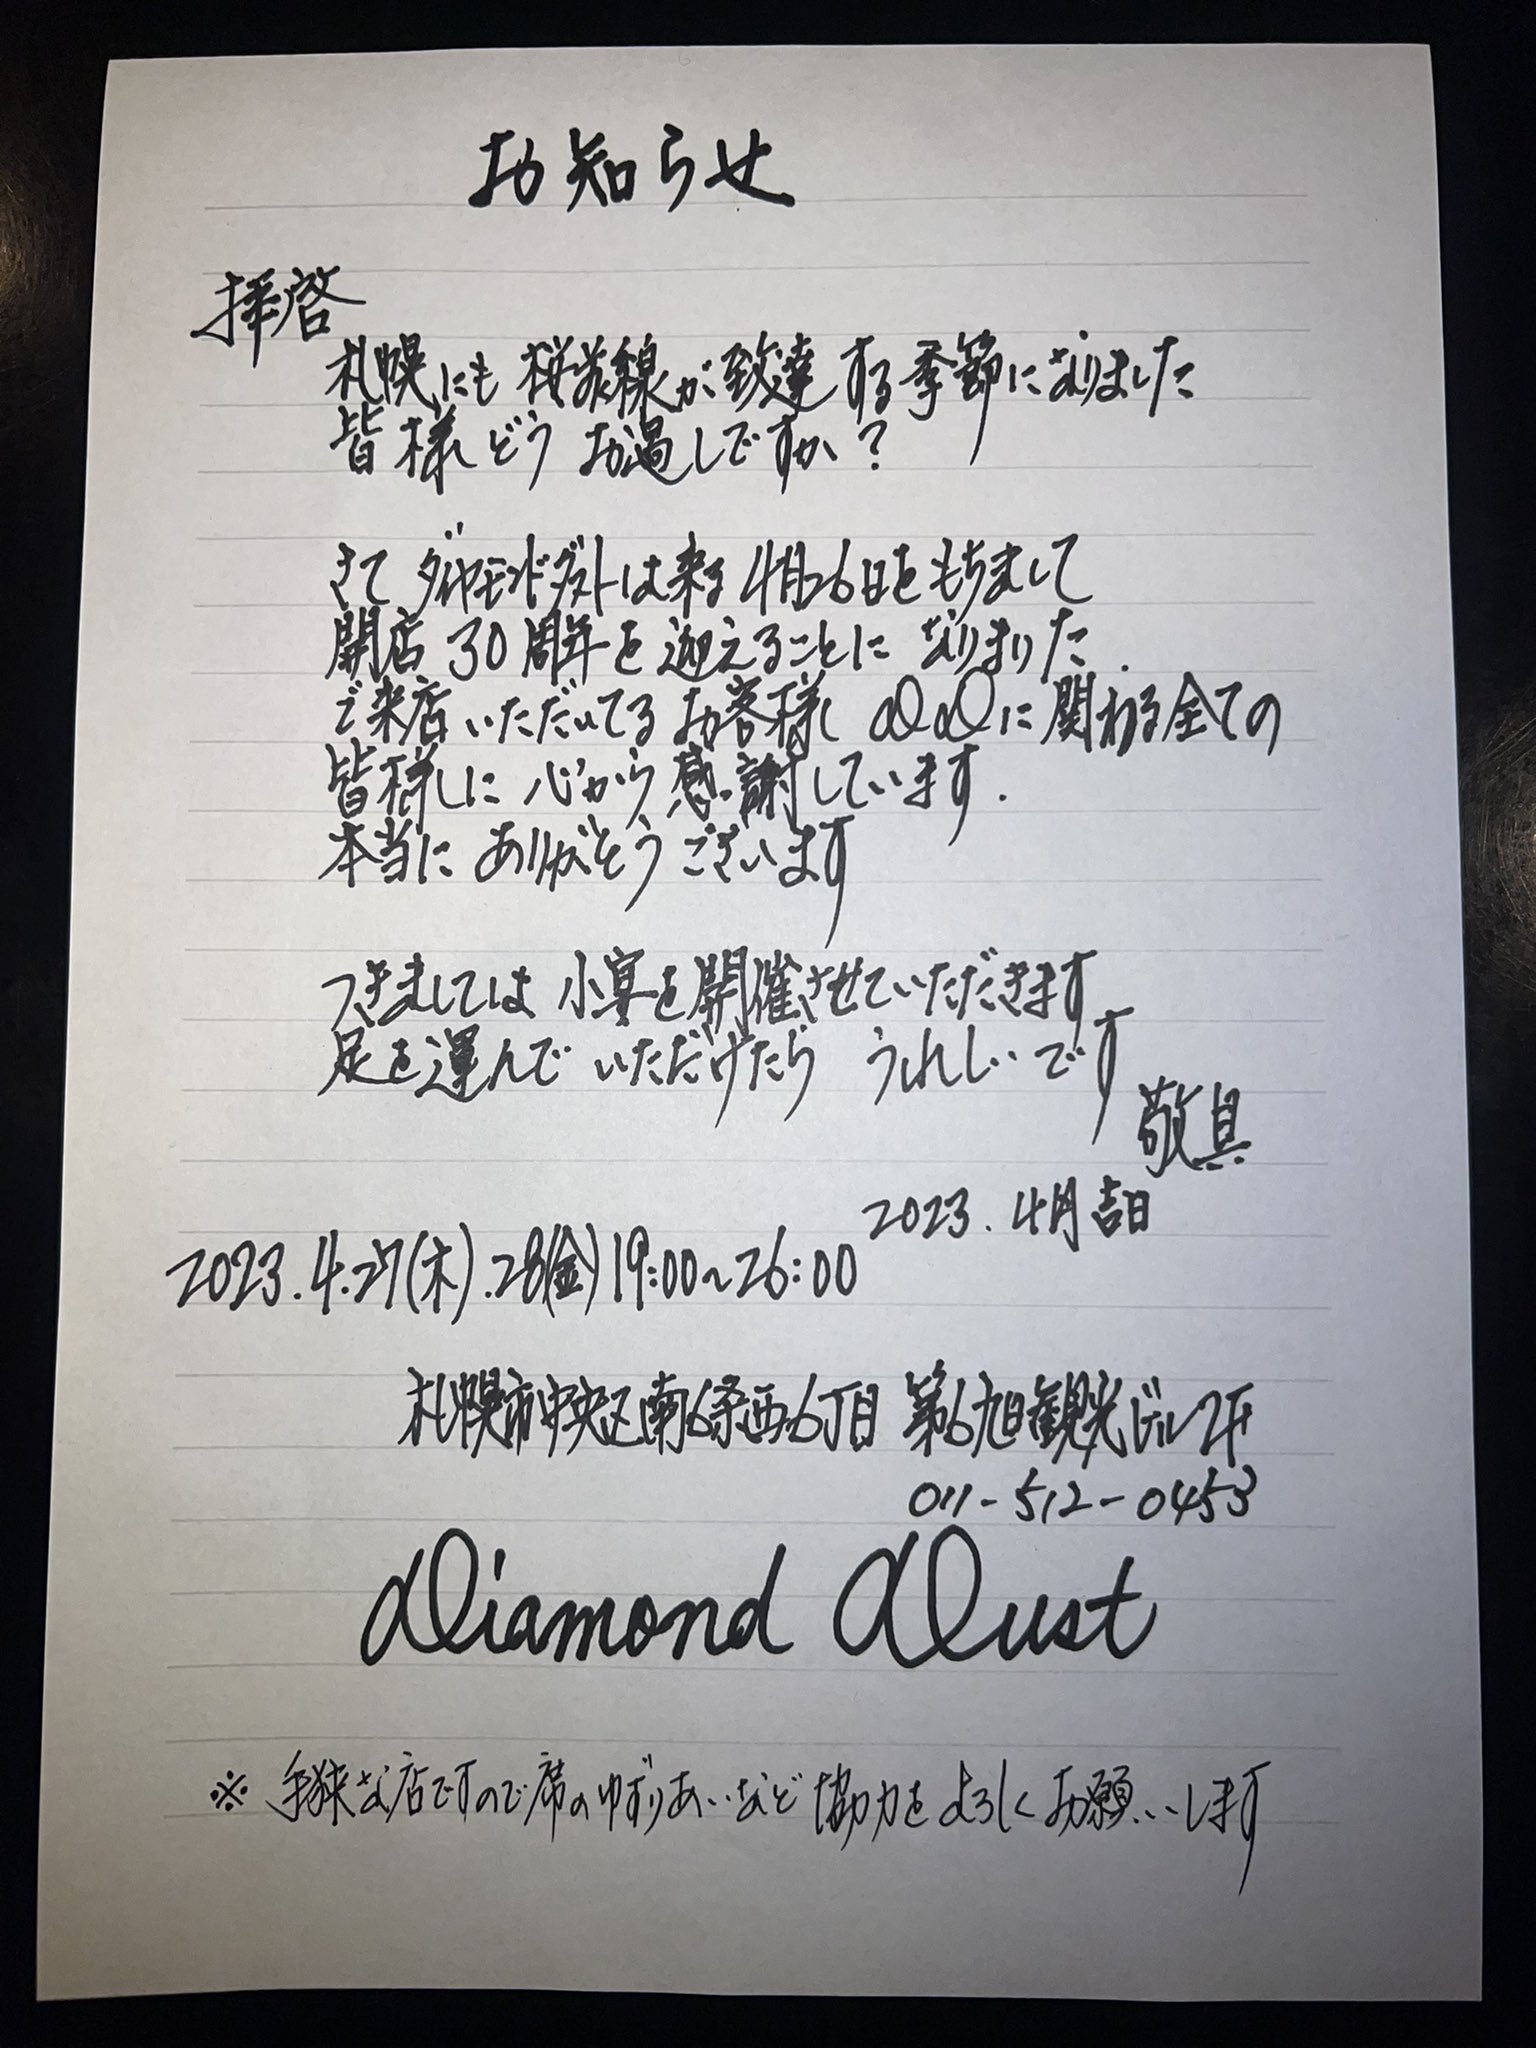 お知らせ
拝啓
札幌にも桜前線が到達する季節になりました
皆様どうお過しですか？
さてダイヤモンドダストは来る4月26日をもちまして
開店30周年を迎えることになりました.
ご来店いただいてるお客様 DDに関わる全ての
皆様に心から感謝しています.
本当にありがとうございます
つきましては小宴を開催させていただきます
足を運んでいただけたら うれしいです
敬具
2023.4月吉日
2023.4.27(木).28(金)19:00~26:00
札幌市中央区南6条西6丁目 第6旭観光ビル2F
011-512-0453
Diamond Dust
※ 手狭な店ですので席のゆずりあいなど協力をよろしくお願いします